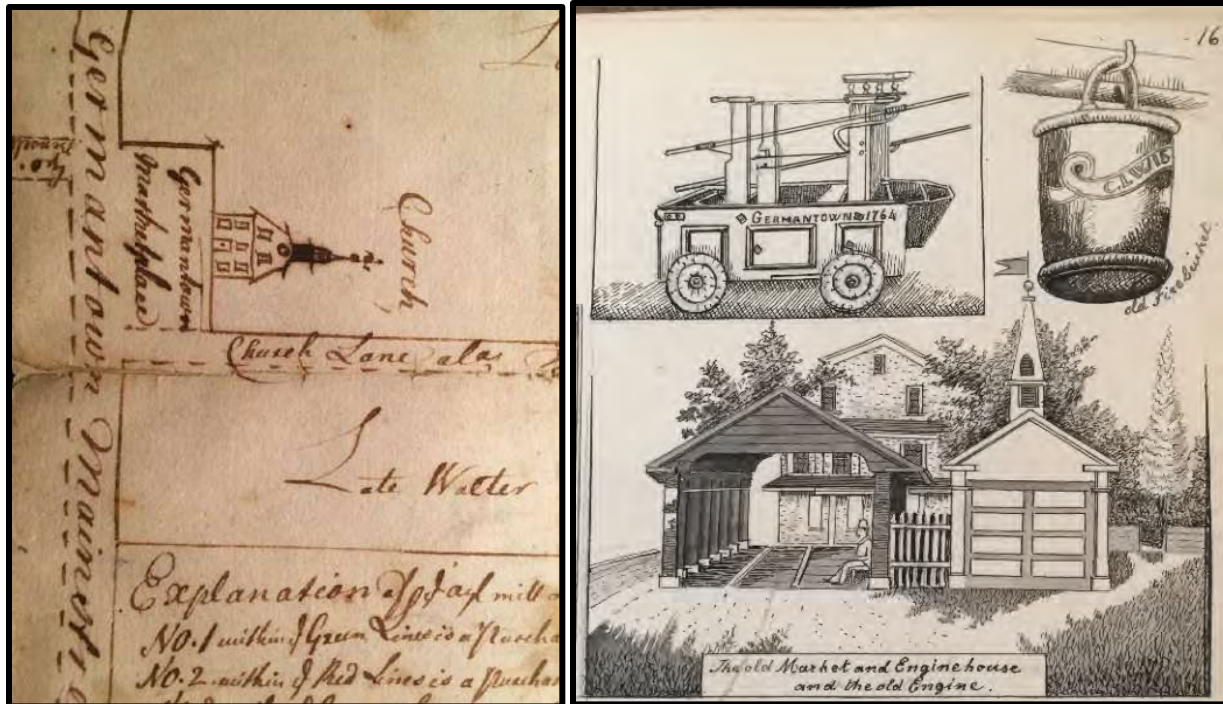 Germantown Mainstr
Germantown
Marketplace
Church
Church Lane alas
Late Walter
Explanation of mill
NO. 1 within Green Lines is a Purcha
NO. 2 within Red Lines is a Purchas
16
GERMANTOWN 1764
C. LWIS
old Firebucket
The old Market and Enginehouse
and the old Engine.